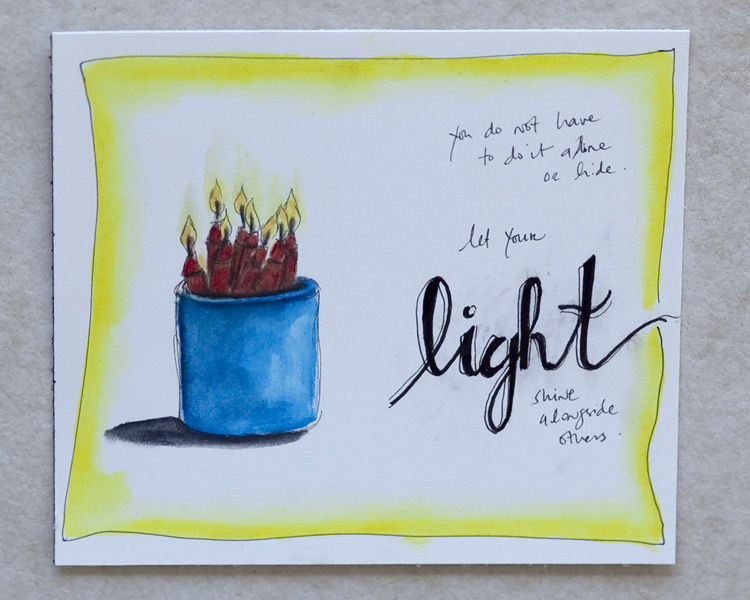 you do not have
to do it alone
or hide.
let your
light
shine
alongside
others.